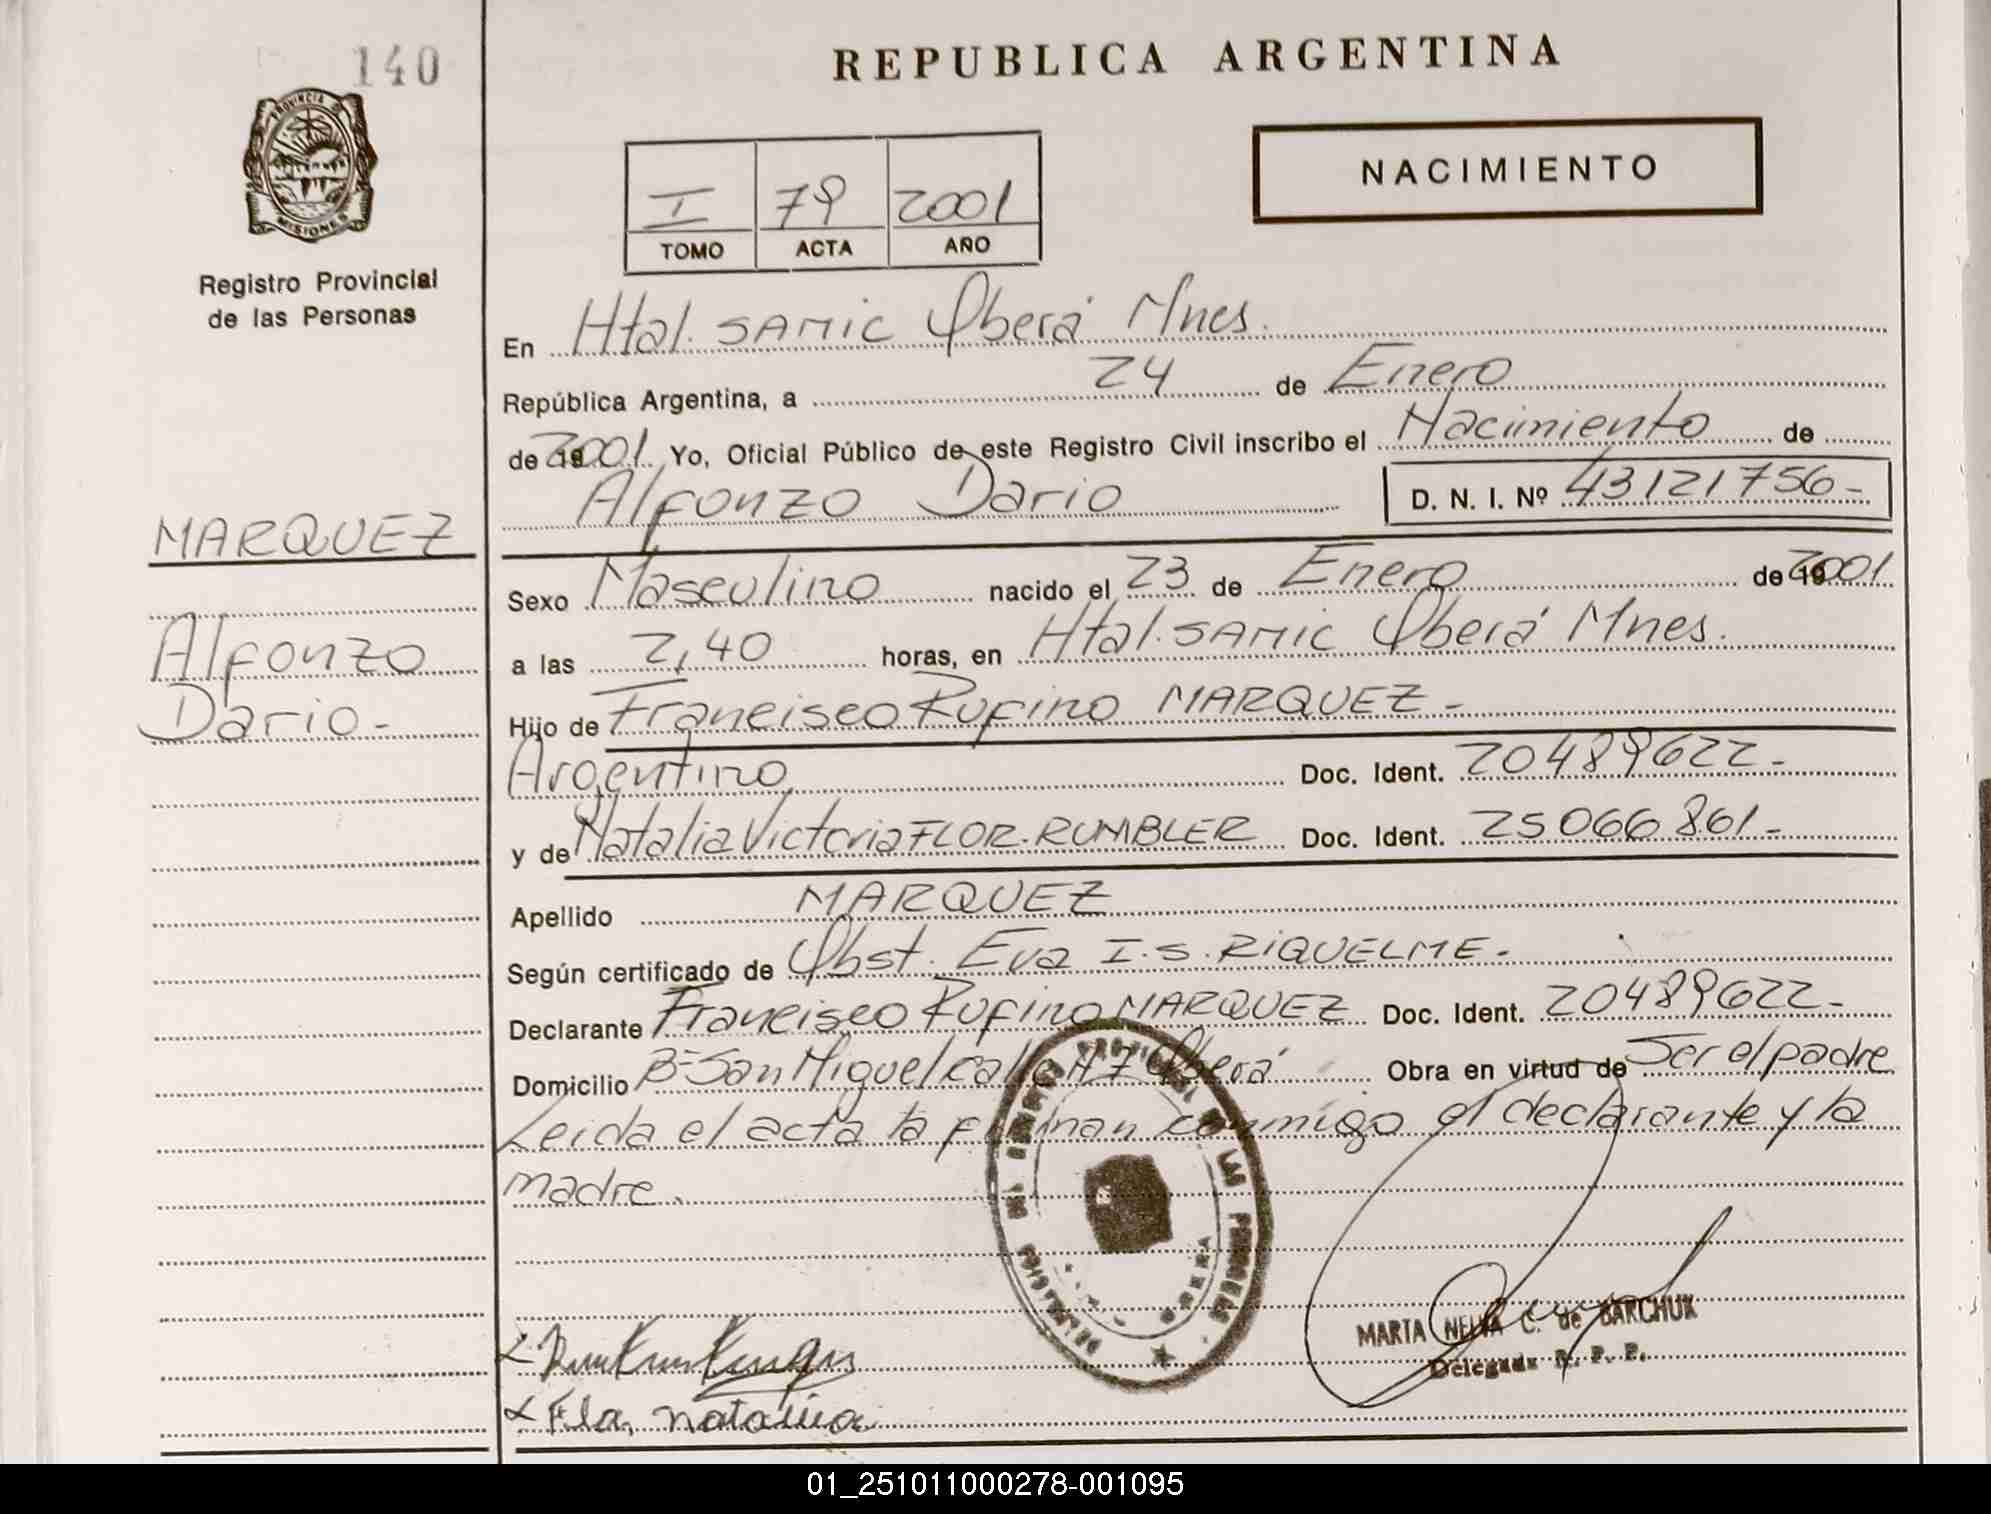 140
REPUBLICA ARGENTINA
PROVINCIA DE
MISIONES
NACIMIENTO
I 79 2001
TOMO ACTA AÑO
Registro Provincial
de las Personas
En Htal. SAMIC Oberá Mnes.
República Argentina, a 24 de Enero
de 2001 Yo, Oficial Público de este Registro Civil inscribo el Nacimiento de
Alfonzo Dario D. N. I. Nº 43121756-
MARQUEZ
Alfonzo
Dario-
Sexo Masculino nacido el 23 de Enero de 2001
a las 2,40 horas, en Htal. SAMIC Oberá Mnes.
Hijo de Francisco Rufino MARQUEZ-
Argentino Doc. Ident. 20489622-
y de Natalia Victoria FLOR-RUMBLER Doc. Ident. 25066861-
Apellido MARQUEZ
Según certificado de Obst. Eva I.S. RIQUELME-
Declarante Francisco Rufino MARQUEZ Doc. Ident. 20489622-
Domicilio Bº San Miguel calle Nº7 Oberá Obra en virtud de Ser el padre
Leida el acta la firman conmigo el declarante y la
madre.
MARTA NELVA C. de BARCHUK
Delegada R. P. P.
Flor, natalia
01_251011000278-001095